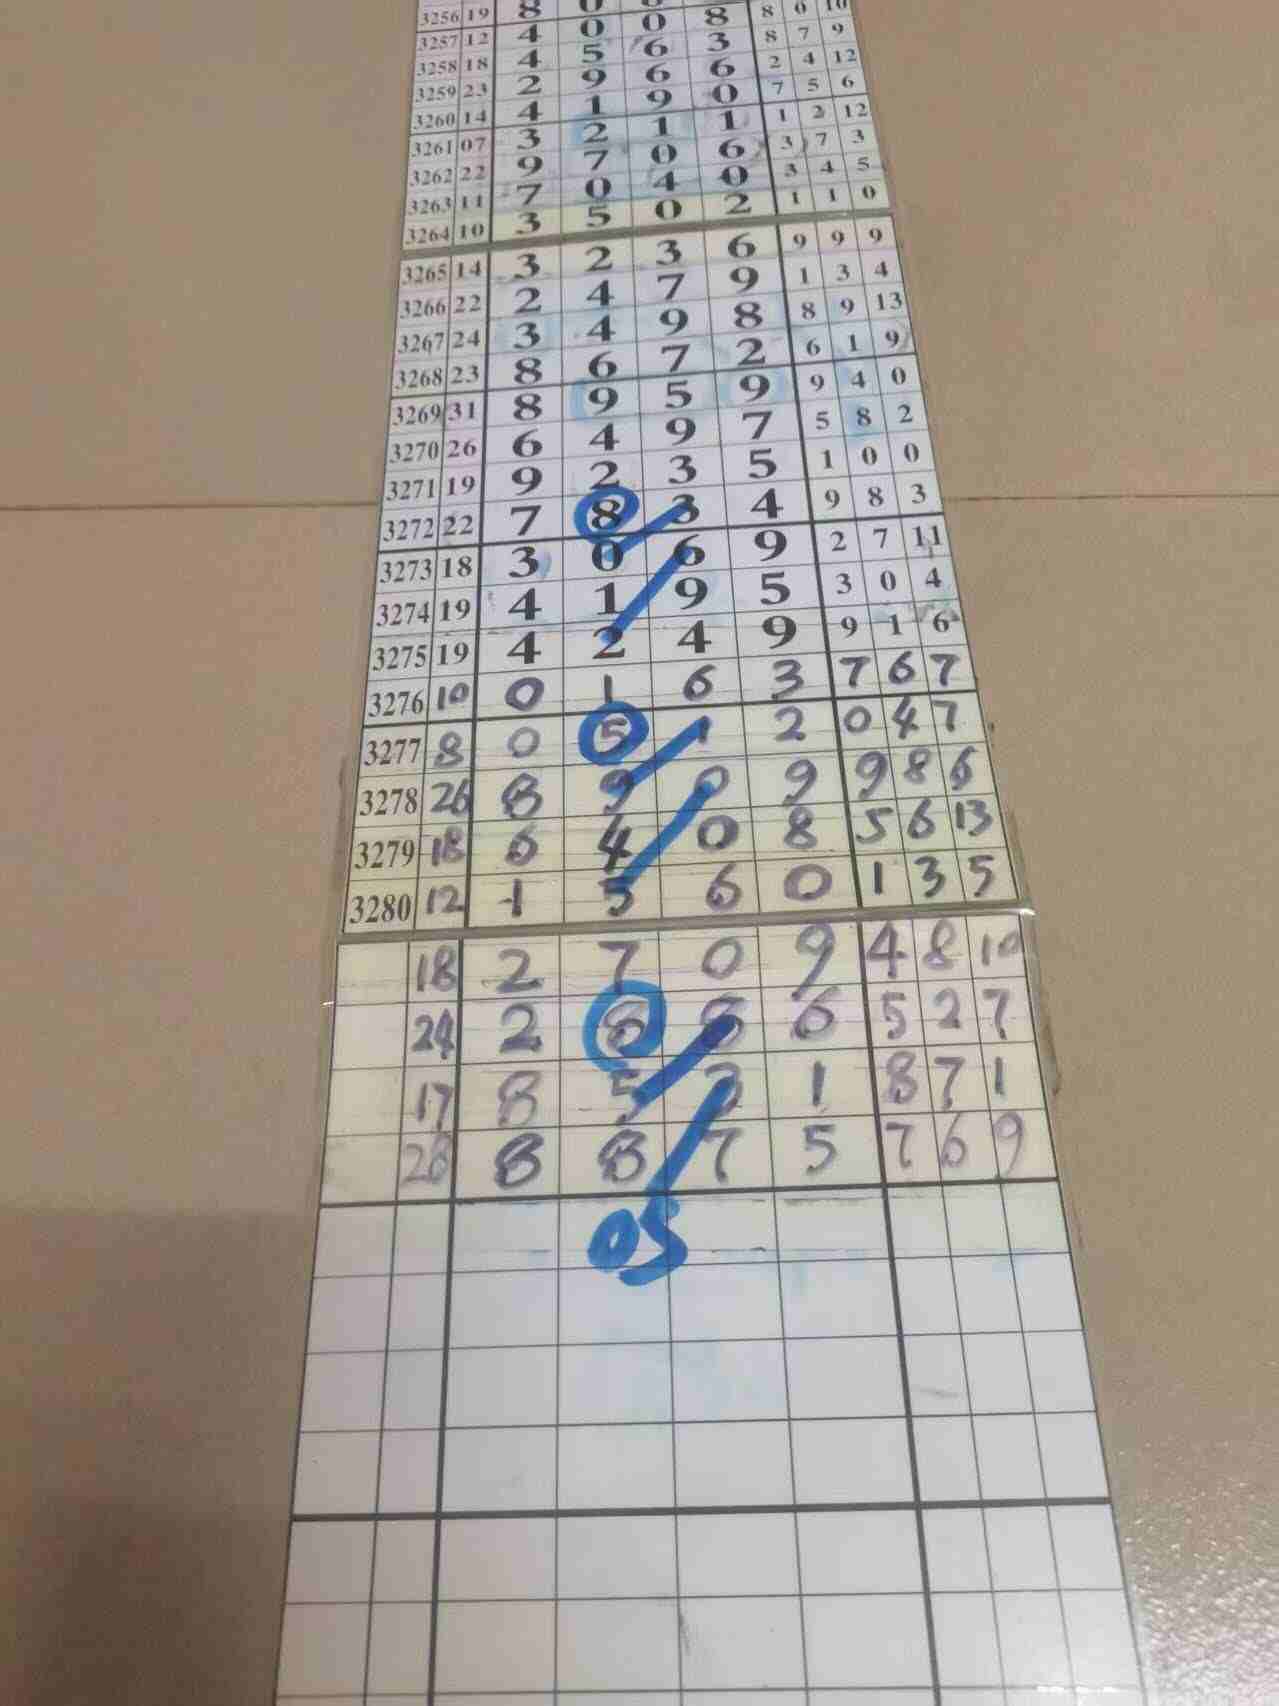 3256 19 8 0 0 8 8 0 10
3257 12 4 0 0 8 8 7 9
3258 18 4 5 6 3 2 4 12
3259 23 2 9 6 6 7 5 6
3260 14 4 1 9 0 1 2 12
3261 07 3 2 1 1 3 7 3
3262 22 9 7 0 6 3 4 5
3263 11 7 0 4 0 1 1 0
3264 10 3 5 0 2
3265 14 3 2 3 6 9 9 9
3266 22 2 4 7 9 1 3 4
3267 24 3 4 9 8 8 9 13
3268 23 8 6 7 2 6 1 9
3269 31 8 9 5 9 9 4 0
3270 26 6 4 9 7 5 8 2
3271 19 9 2 3 5 1 0 0
3272 22 7 8 3 4 9 8 3
3273 18 3 0 6 9 2 7 11
3274 19 4 1 9 5 3 0 4
3275 19 4 2 4 9 9 1 6
3276 10 0 1 6 3 7 6 7
3277 8 0 5 1 2 0 4 7
3278 26 8 9 0 9 9 8 6
3279 18 6 4 0 8 5 6 13
3280 12 1 5 6 0 1 3 5
18 2 7 0 9 4 8 10
24 2 8 8 6 5 2 7
17 8 5 3 1 8 7 1
28 8 8 7 5 7 6 9
05